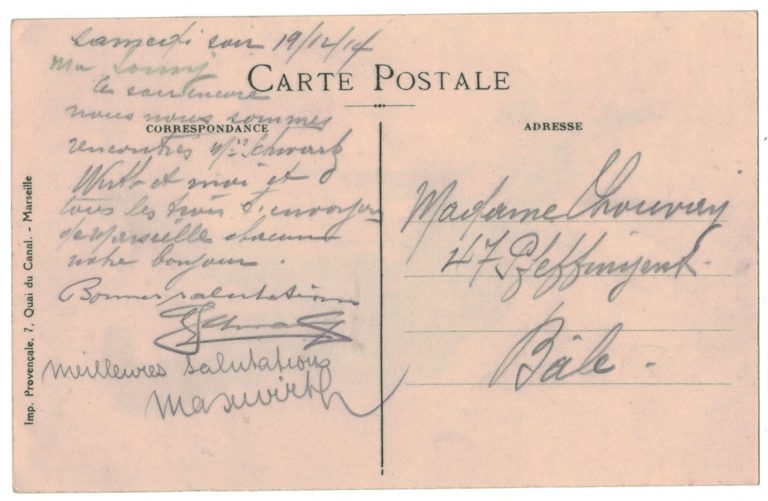 samedi soir 19/12/14
Ma
CARTE POSTALE
ce soir encore
nous nous sommes
CORRESPONDANCE
rencontrés Mrs Schwartz
Wirth et moi et
tous les trois t'envoyons
de Marseille chacun
notre bonjour.
Bonnes salutations
Meilleures salutations
Max Wirth
ADRESSE
Madame
47 Pfeffingerst.
Bâle.
Imp. Provençale, 7, Quai du Canal. - Marseille